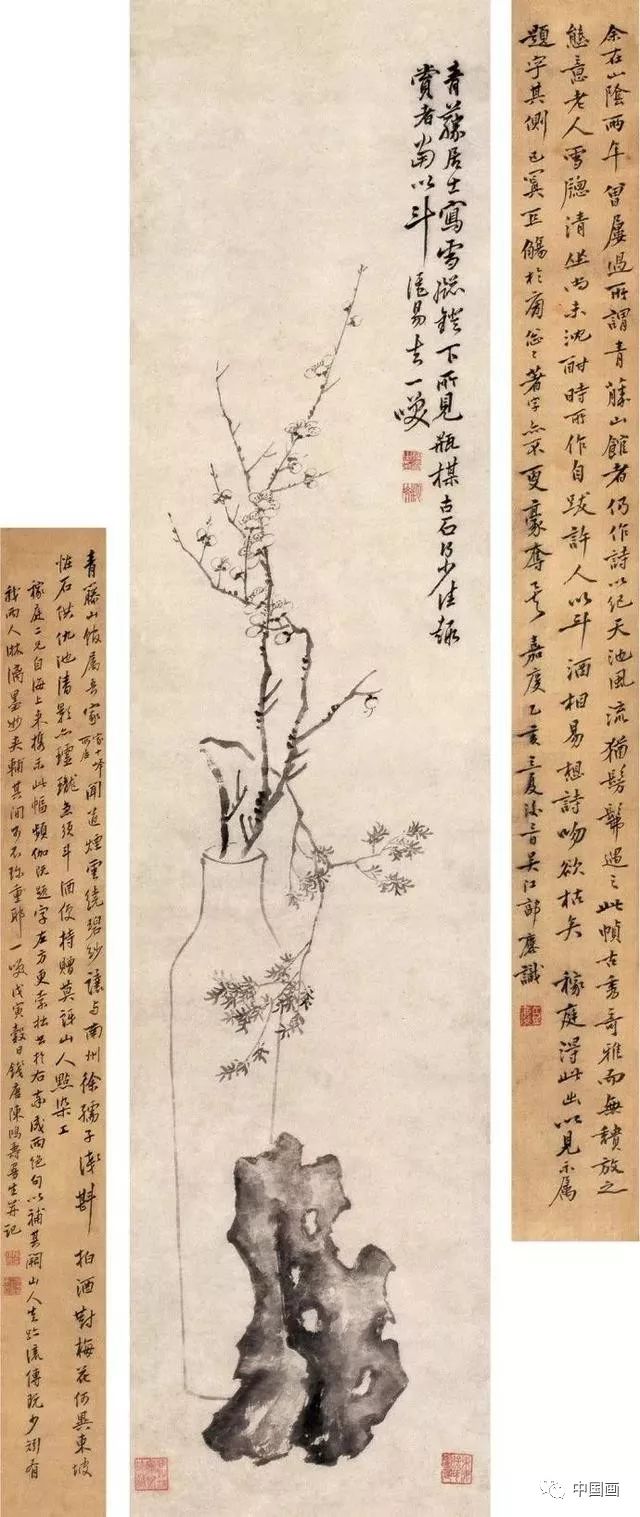 余在山陰兩年曾屢過所謂青藤山館者仍作詩以紀天池風流猶髣髴遇之此幀古秀奇雅而無穨放之
態意老人雪牕清坐尚未沈酣時所作自跋許人以斗酒相易想詩吻欲枯矣 稼庭得此出以見示属
題字其側已冥亟觴於前忩〻著字亦不 豪奪 嘉慶乙亥立夏 吳江郭麐識
青藤居士寫雪牕鐙下所見瓶楳古石多佳趣
賞者當以斗酒易去一咲
青藤山館属吾家家十峰所居聞道煙雲繞碧紗讓与南州徐孺子 斟 拍酒對梅花何異東坡
怪石供仇池清影亦 瓏無須斗酒便持贈莫訝山人點染工
稼庭二兄自海上来携示此幅頻伽既題字左方更索拙書於右率成兩絕句以補其闕山人真跡流傳既少 有
我兩人淋漓墨妙夾輔其間可不珍重耶一咲戊寅穀日錢唐陳鴻壽曼生并記
中国画